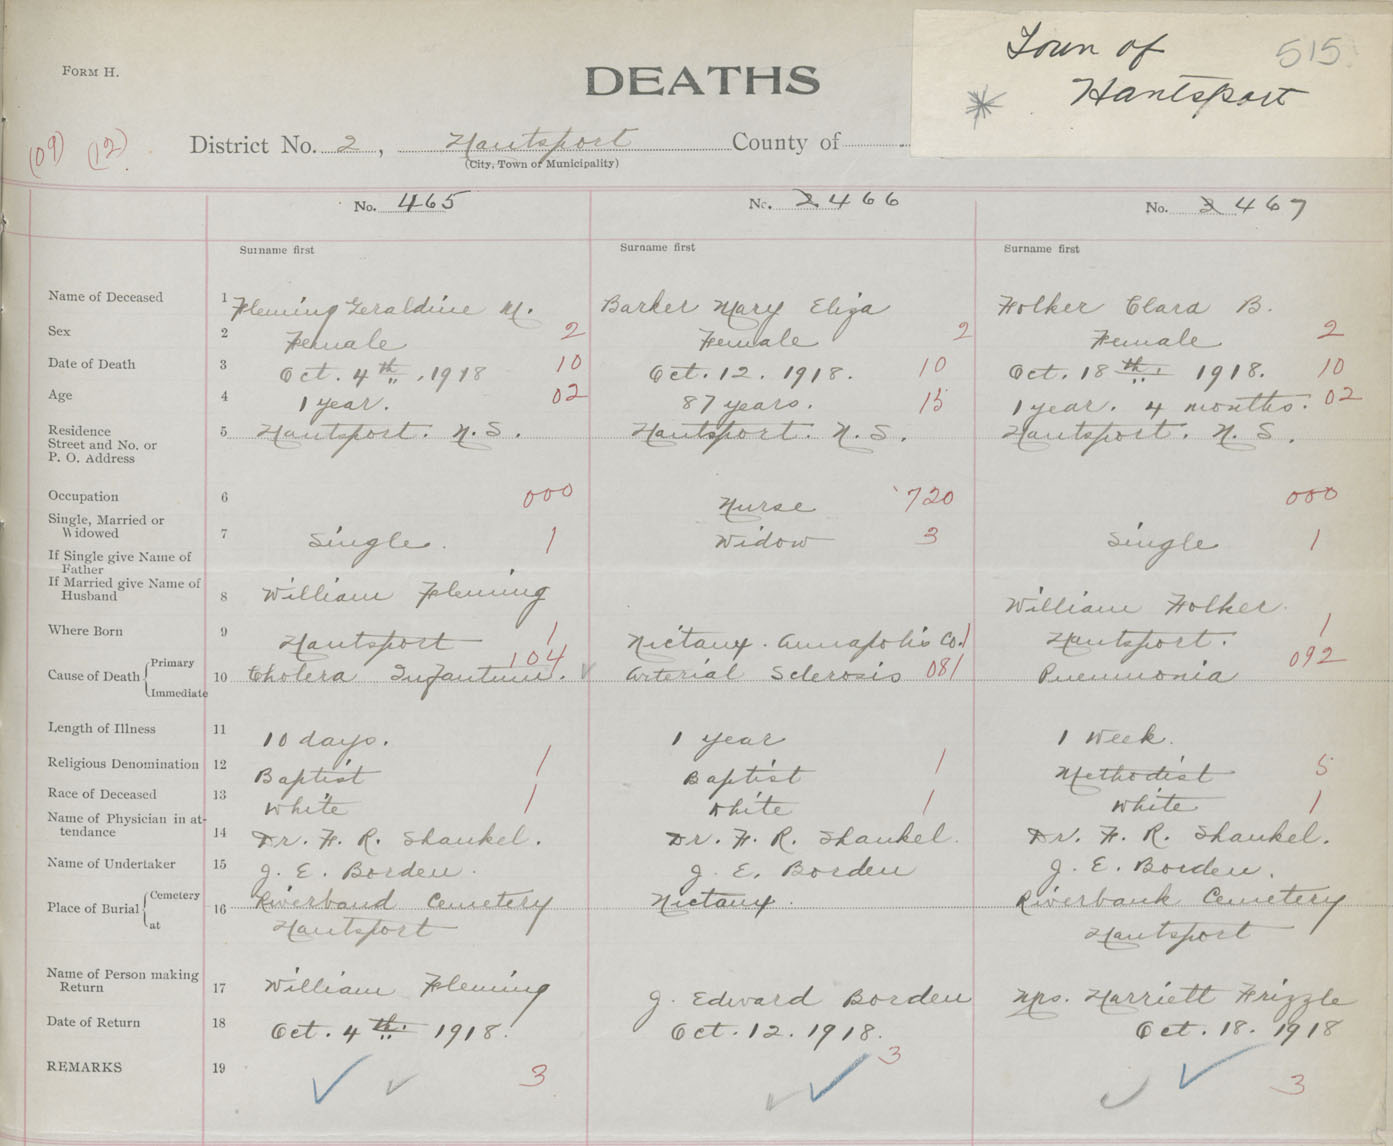 Town of 515
Hantsport
Form H.
DEATHS
(09) (12)
District No. 2, Hantsport County of
(City, Town of Municipality)
No. 465 No. 2 466 No. 2 467
Surname first Surname first Surname first
Name of Deceased 1 Fleming Geraldine M. Barker Mary Eliza Folker Clara B.
Sex 2 Female 2 Female 2 Female 2
Date of Death 3 Oct. 4th, 1918 10 Oct. 12. 1918. 10 Oct. 18th 1918. 10
Age 4 1 year. 02 87 years. 15 1 year. 4 months. 02
Residence
Street and No. or
P. O. Address
5 Hantsport. N.S. Hantsport. N.S. Hantsport. N.S.
Occupation 6 000 Nurse 720 000
Single, Married or
Widowed
7 Single. 1 Widow 3 Single 1
If Single give Name of
Father
If Married give Name of
Husband
8 William Fleming William Folker.
Where Born 9 Hantsport 1 Nictaux. Annapolis Co. 1 Hantsport. 1
Cause of Death Primary
Immediate
10 Cholera Infantum. 104 Arterial Sclerosis 081 Pneumonia 092
Length of Illness 11 10 days. 1 year 1 week.
Religious Denomination 12 Baptist 1 Baptist 1 Methodist 5
Race of Deceased 13 White 1 White 1 White 1
Name of Physician in at-
tendance
14 Dr. F. R. Shankel. Dr. F. R. Shankel. Dr. F. R. Shankel.
Name of Undertaker 15 J. E. Borden. J. E. Borden J. E. Borden.
Place of Burial Cemetery
at
16 Riverband Cemetery Nictaux. Riverbank Cemetery
Hantsport Hantsport
Name of Person making
Return
17 William Fleming J. Edward Borden Mrs. Harriett Frizzle
Date of Return 18 Oct. 4th. 1918. Oct. 12. 1918. Oct. 18. 1918
REMARKS 19 3 3 3